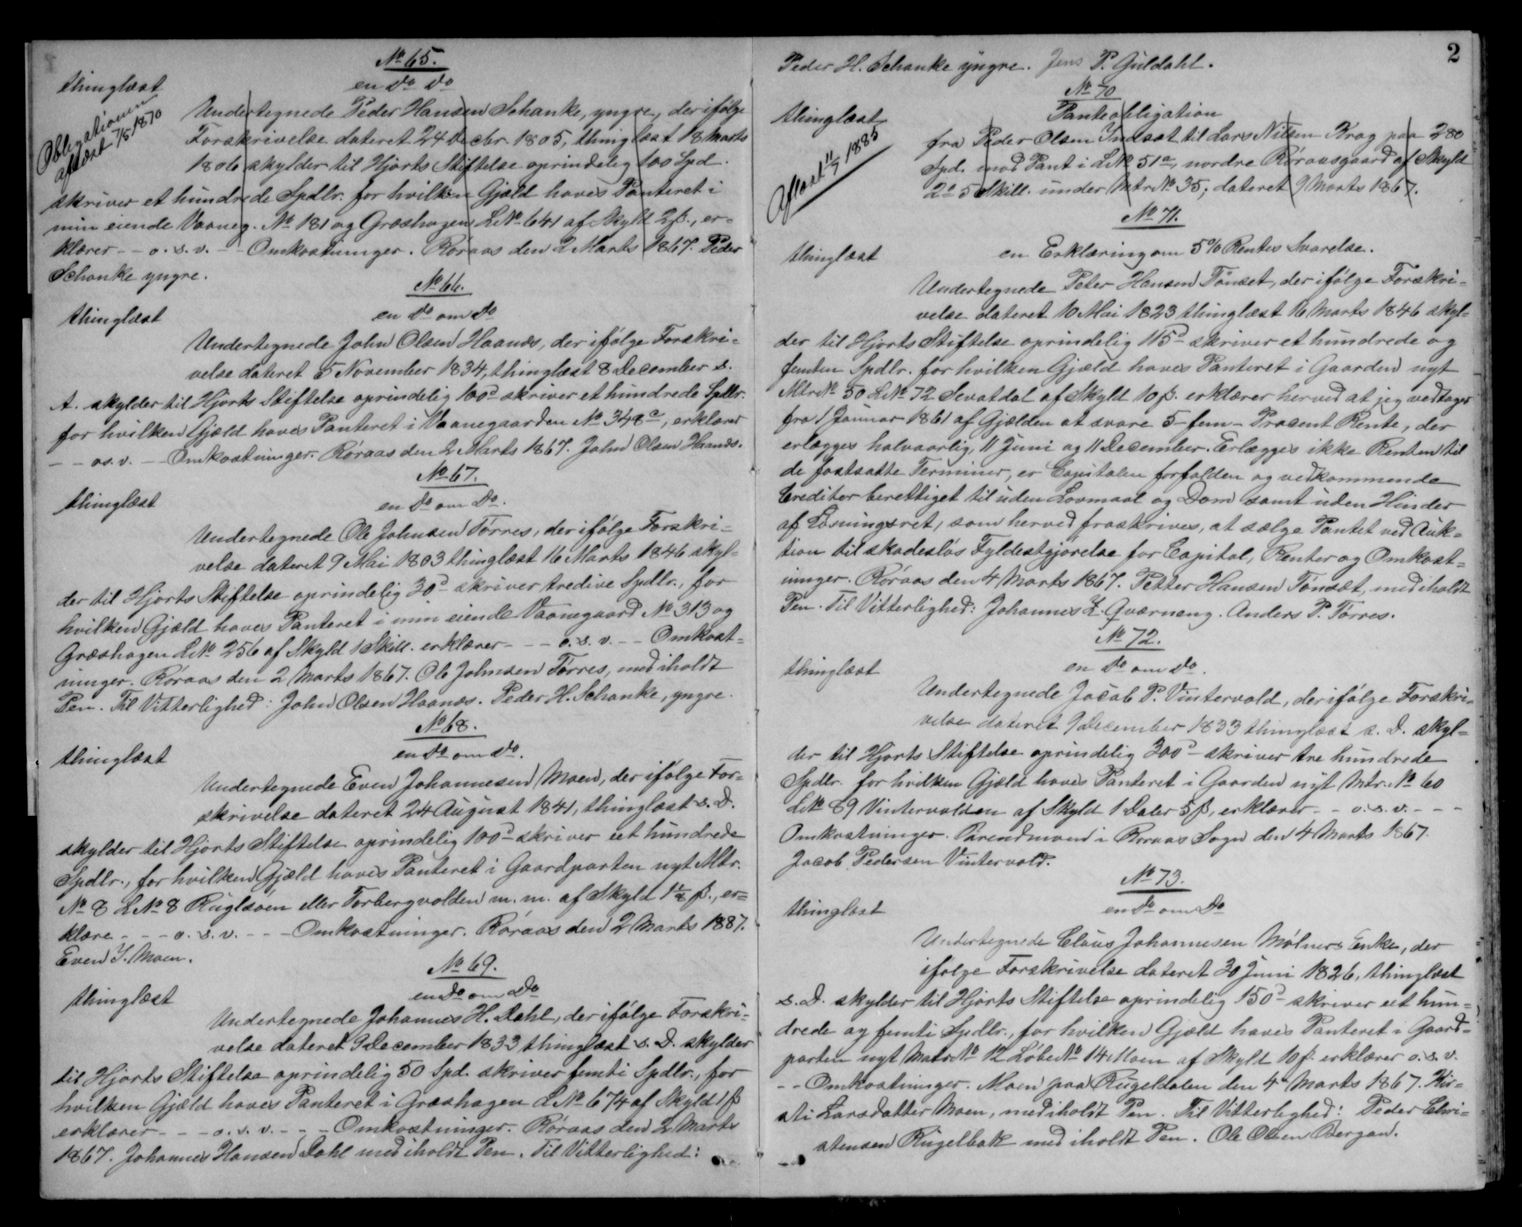 No 65.
en do do
thinglæst
Obligationen aflæst 7/5 1870
Undertegnede Peder Hansen Schanke, yngre, der ifølge
Forskrivelse dateret 24 Decbr. 1805, thinglæst 18 Marts
1806 skylder til Hjorts Stiftelse oprindelig 100 Spd.
skriver et hundrede Spdlr. for hvilken Gjæld haves Panteret i
min eiende Vaaneg. No 181 og Græshagen L No 641 af Skyld 2 β., er=
klærer - - o. s. v. - Omkostninger. Röraas den 2 Marts 1867. Peder
Schanke yngre.
No 66.
en do om do
thinglæst
Undertegnede John Olsen Haanes, der ifölge Forskri=
velse dateret 5 November 1834, thinglæst 8 December s.
A. skylder til Hjorts Stiftelse oprindelig 100 d skriver et hundrede Spdlr.
for hvilken Gjæld haves Panteret i Vaanegaarden No 348 a, erklærer
- - o. s. v. - - Omkostninger. Röraas den 2 Marts 1867. John Olsen Haanæs.
No 67.
en do om do.
thinglæst
Undertegnede Ole Johnsen Törres, der ifölge Forskri=
velse dateret 9 Mai 1803 thinglæst 16 Marts 1846 skyl=
der til Hjorts Stiftelse oprindelig 30 d skriver tredive Spdlr., for
hvilken Gjæld haves Panteret i min eiende Vaanegaard No 313 og
Græshagen L No 256 af Skyld 1 Skill. erklærer - - - o. s. v. - - Omkost=
ninger. Röraas den 2 Marts 1867. Ole Johnsen Törres, med iholdt
Pen. Til Vitterlighed: John Olsen Haanæs. Peder H. Schanke, yngre.
No 68.
en do om do.
thinglæst
Undertegnede Even Johannesen Moen, der ifölge For=
skrivelse dateret 24 August 1841, thinglæst s. D.
skylder til Hjorts Stiftelse oprindelig 100 d skriver eet hundrede
Spdlr., for hvilken Gjæld haves Panteret i Gaardparten nyt Mtr.
No 8 L No 8 Ruglsöen eller Forbergvolden m. m. af Skyld 1 1/8 β., er=
klære - - - o. s. v. - - - Omkostninger. Röraas den 2 Marts 1887.
Even J. Moen.
No 69.
en do om do
thinglæst
Undertegnede Johannes H. Dahl, der ifölge Forskri=
velse dateret 9 December 1833 thinglæst s. D. skylder
til Hjorts Stiftelse oprindelig 50 Spd. skriver femti Spdlr., for
hvilken Gjæld haves Panteret i Græshagen L No 674 af Skyld 1 β
erklærer - - - o. s. v. - - - Omkostninger. Röraas den 2 Marts
1867. Johannes Hansen Dahl med iholdt Pen. Til Vitterlighed:
2
Peder H. Schanke yngre. Jens P. Guldahl.
No 70
Panteobligation
thinglæst
Aflæst 11/7 1885
fra Peder Olsen Indset til Lars Nilsen Krog paa 280
Spd. mod Pant i L No 51 a, nordre Röraasgaard af Skyld
2 d 5 Skill. under Mtr No 35, dateret 9 Marts 1867.
No 71.
thinglæst
en Erklæring om 5 % Renters Svarelse.
Undertegnede Peter Hansen Tönset, der ifölge Forskri=
velse dateret 10 Mai 1823 thinglæst 16 Marts 1846 skyl=
der til Hjorts Stiftelse oprindelig 115 d skriver et hundrede og
femten Spdlr. for hvilken Gjæld haves Panteret i Gaarden nyt
Mtr No 50 L No 72 Sevatdal af Skyld 10 β. erklærer herved at jeg vedtager
fra 1 Januar 1861 af Gjælden at svare 5 - fem - Procent Rente, der
erlægges halvaarlig, 11 Juni og 11 December. Erlægges ikke Renten til
de fastsatte Terminer, er Capitalen forfalden og vedkommende
Creditor berettiget til uden Lovmaal og Dom samt uden Hinder
af Løsningsret, som herved fraskrives, at sælge Pantet ved Auk=
tion til skadeslös Fyldestgjörelse for Capital, Renter og Omkost=
ninger. Röraas den 4 Marts 1867. Petter Hansen Tönset, med iholdt
Pen. Til Vitterlighed: Johannes L. Qværneng. Anders P. Torres.
No 72.
en do om do.
thinglæst
Undertegnede Jacob P. Vintervold, der ifölge Forskri=
velse dateret 9 December 1833 thinglæst s. D. skyl=
der til Hjorts Stiftelse oprindelig 300 d skriver tre hundrede
Spdlr. for hvilken Gjæld haves Panteret i Gaarden nyt Mtr. No 60
L No 89 Vintervolden af Skyld 1 Daler 5 β, erklærer - - o. s. v. - - -
Omkostninger. i Röraas Sogn den 4 Marts 1867.
Jacob Pedersen Vintervold.
No 73.
en do om do
thinglæst
Undertegnede Claus Johannesen Mölners Enke, der
ifölge Forskrivelse dateret 30 Juni 1826, thinglæst
s. D. skylder til Hjorts Stiftelse oprindelig 150 d skriver eet hun=
drede og femti Spdlr., for hvilken Gjæld haves Panteret i Gaard=
parten nyt Matr. No 12 Löbe No 14, Moen af Skyld 10 β. erklærer o. s. v.
- - Omkostninger. Moen paa Rugeldalen den 4de Marts 1867. Kir=
sti Larsdatter Moen, med iholdt Pen. Til Vitterlighed: Peder Chri=
stensen Rugelbak med iholdt Pen. Ole Olsen Bergan.